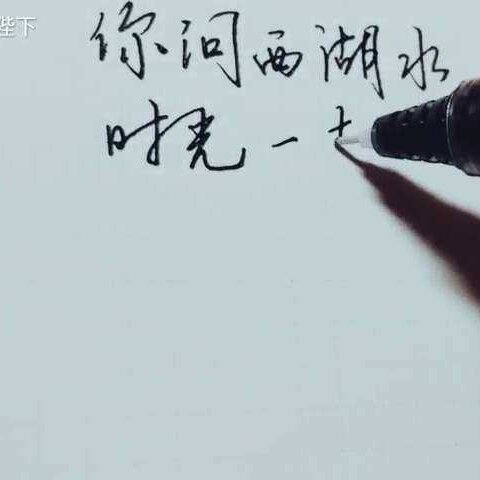 陛下
你问西湖水
时光一